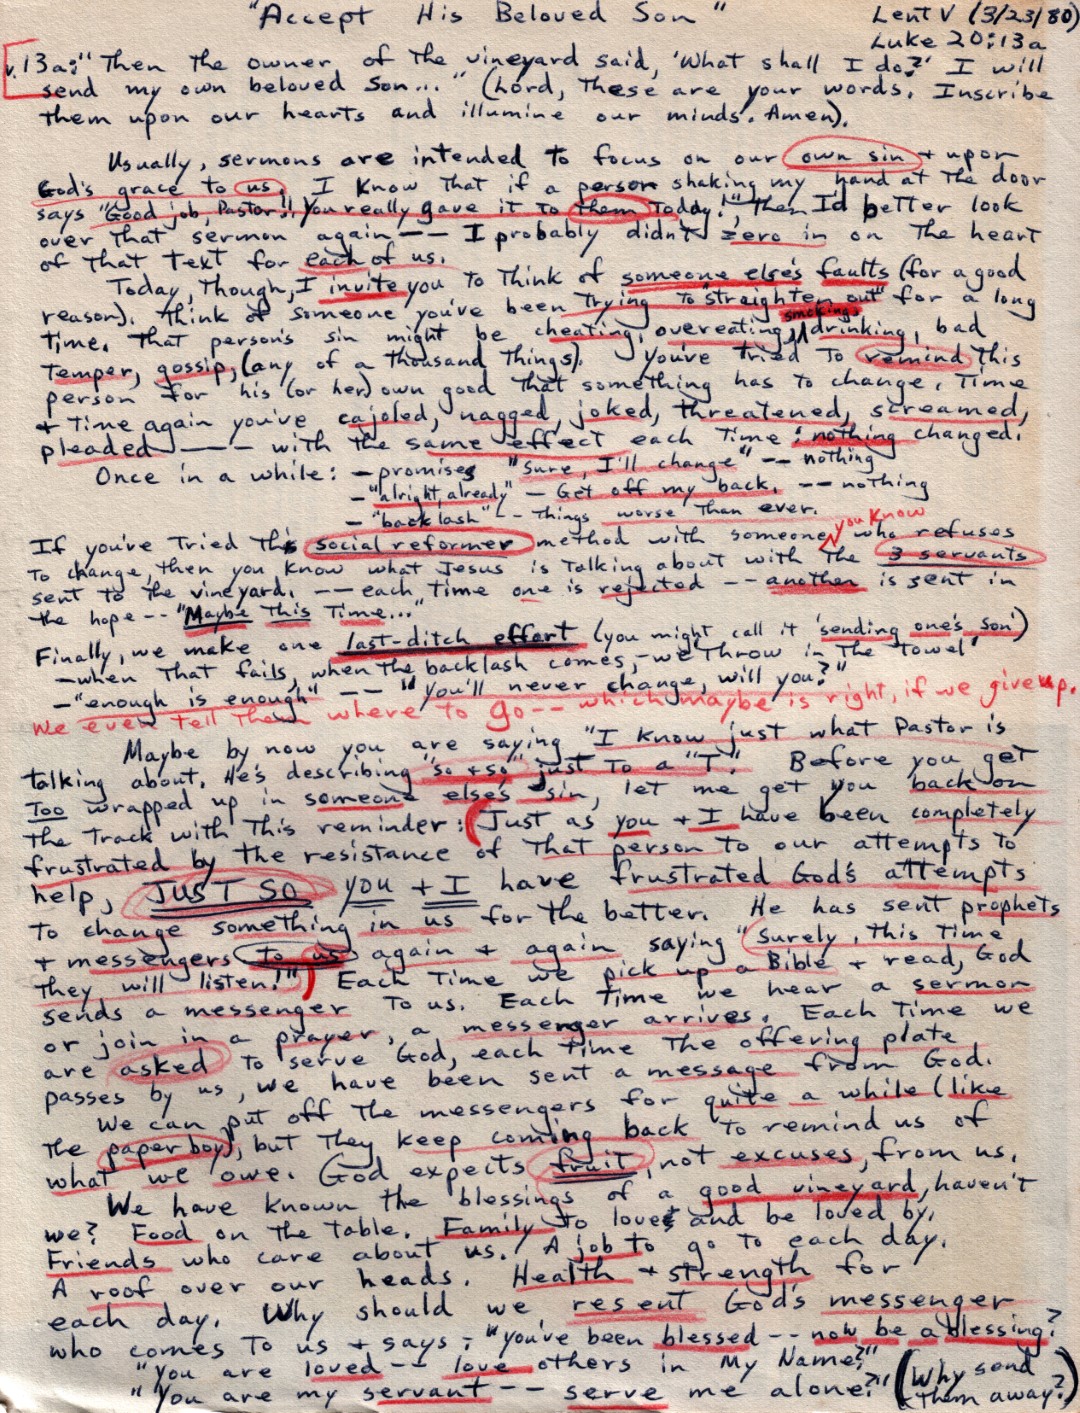 "Accept His Beloved Son" Lent V (3/23/80)
Luke 20:13a
v. 13a: "Then the owner of the vineyard said, 'What shall I do?' I will
send my own beloved Son..." (Lord, These are your words. Inscribe
them upon our hearts and illumine our minds. Amen).
Usually, sermons are intended to focus on our own sin + upon
God's grace to us. I know that if a person shaking my hand at the door
says "Good job, Pastor!! You really gave it to them Today!", then I'd better look
over that sermon again -- I probably didn't zero in on the heart
of that text for each of us.
Today, though, I invite you to think of someone else's faults (for a good
reason). Think of someone you've been trying to "straighten out" for a long
smoking,
time. That person's sin might be cheating, overeating, drinking, bad
temper, gossip, (any of a thousand things). You've tried to remind this
person for his (or her) own good that something has to change. Time
+ time again you've cajoled, nagged, joked, threatened, screamed,
pleaded --- with the same effect each time: nothing changed.
Once in a while: - promises "Sure, I'll change" -- nothing
- "alright, already" - Get off my back. -- nothing
- "back lash" -- Things worse than ever.
you know
If you've tried this social reformer method with someone who refuses
to change, then you know what Jesus is talking about with the 3 servants
sent to the vineyard. -- each time one is rejected -- another is sent in
the hope -- "Maybe this Time..."
Finally, we make one last-ditch effort (you might call it 'sending one's son')
- when that fails, when the backlash comes, - we 'throw in the towel'
- "enough is enough" -- "you'll never change, will you?"
We even tell them where to go -- which maybe is right, if we give up.
Maybe by now you are saying "I know just what Pastor is
talking about. He's describing "so + so" just to a "T"." Before you get
too wrapped up in someone else's sin, let me get you back on
the track with this reminder: (Just as you + I have been completely
frustrated by the resistance of that person to our attempts to
help, JUST SO you + I have frustrated God's attempts
to change something in us for the better. He has sent prophets
+ messengers to us again + again saying "Surely, this time
they will listen!") Each time we pick up a Bible + read, God
sends a messenger to us. Each time we hear a sermon
or join in a prayer, a messenger arrives. Each time we
are asked to serve God, each time the offering plate
passes by us, we have been sent a message from God.
We can put off the messengers for quite a while (like
the paper boy), but they keep coming back to remind us of
what we owe. God expects fruit, not excuses, from us.
We have known the blessings of a good vineyard, haven't
we? Food on the table. Family to love and be loved by.
Friends who care about us. A job to go to each day.
A roof over our heads. Health + strength for
each day. Why should we resent God's messenger
who comes to us + says: "You've been blessed -- now be a blessing?
"You are loved -- love others in My Name?"
"You are my servant -- serve me alone?" (Why send
them away?)